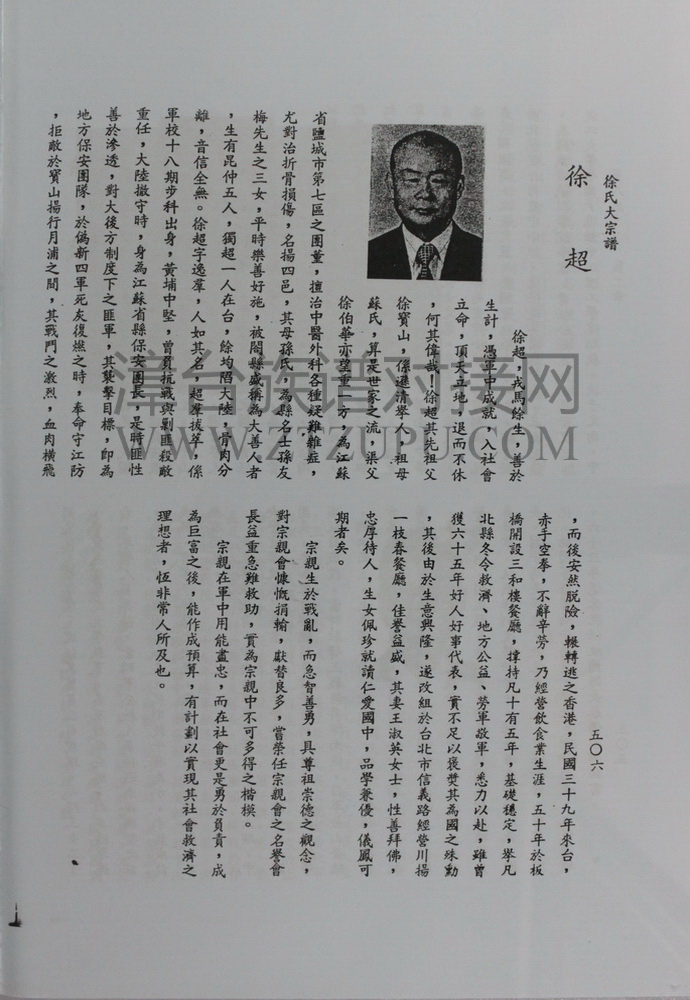 徐氏大宗譜
徐超
徐超，戎馬餘生，善於
生計，憑軍中成就，入社會
立命，頂天立地，退而不休
，何其偉哉！徐超其先祖父
徐寶山，係遜清舉人，祖母
蘇氏，算是世家之流，渠父
徐伯華亦望重一方，為江蘇
省鹽城市第七區之團董，擅治中醫外科各種疑難雜症，
尤對治折骨損傷，名揚四邑，其母孫氏，為縣名士孫友
梅先生之三女，平時樂善好施，被閤縣盛稱為大善人者
，生有昆仲五人，獨超一人在台，餘均陷大陸，骨肉分
離，音信全無。徐超字逸羣，人如其名，超羣拔萃，係
軍校十八期步科出身，黃埔中堅，曾負抗戰與剿匪殺敵
重任，大陸撤守時，身為江蘇省縣保安團長，是時匪性
善於滲透，對大後方制度下之匪軍，其襲擊目標，即為
地方保安團隊，於偽新四軍死灰復燃之時，奉命守江防
，拒敵於寶山揚行月浦之間，其戰鬥之激烈，血肉橫飛
，而後安然脫險，輾轉逃之香港，民國三十九年來台，
赤手空拳，不辭辛勞，乃經營飲食業生涯，五十年於板
橋開設三和樓餐廳，撑持凡十有五年，基礎穩定，舉凡
北縣冬令救濟、地方公益、勞軍敬軍，悉力以赴，雖曾
獲六十五年好人好事代表，實不足以褒獎其為國之殊勳
，其後由於生意興隆，遂改組於台北市信義路經營川揚
一枝春餐廳，佳譽益盛，其妻王淑英女士，性善拜佛，
忠厚待人，生女佩珍就讀仁愛國中，品學兼優，儀鳳可
期者矣。
宗親生於戰亂，而急智善勇，具尊祖崇德之觀念，
對宗親會慷慨捐輸，獻替良多，當榮任宗親會之名譽會
長益重急難救助，實為宗親中不可多得之楷模。
宗親在軍中用能盡忠，而在社會更是勇於負責，成
為巨富之後，能作成預算，有計劃以實現其社會救濟之
理想者，恆非常人所及也。
五〇六
WWW.ZTZUPU.COM